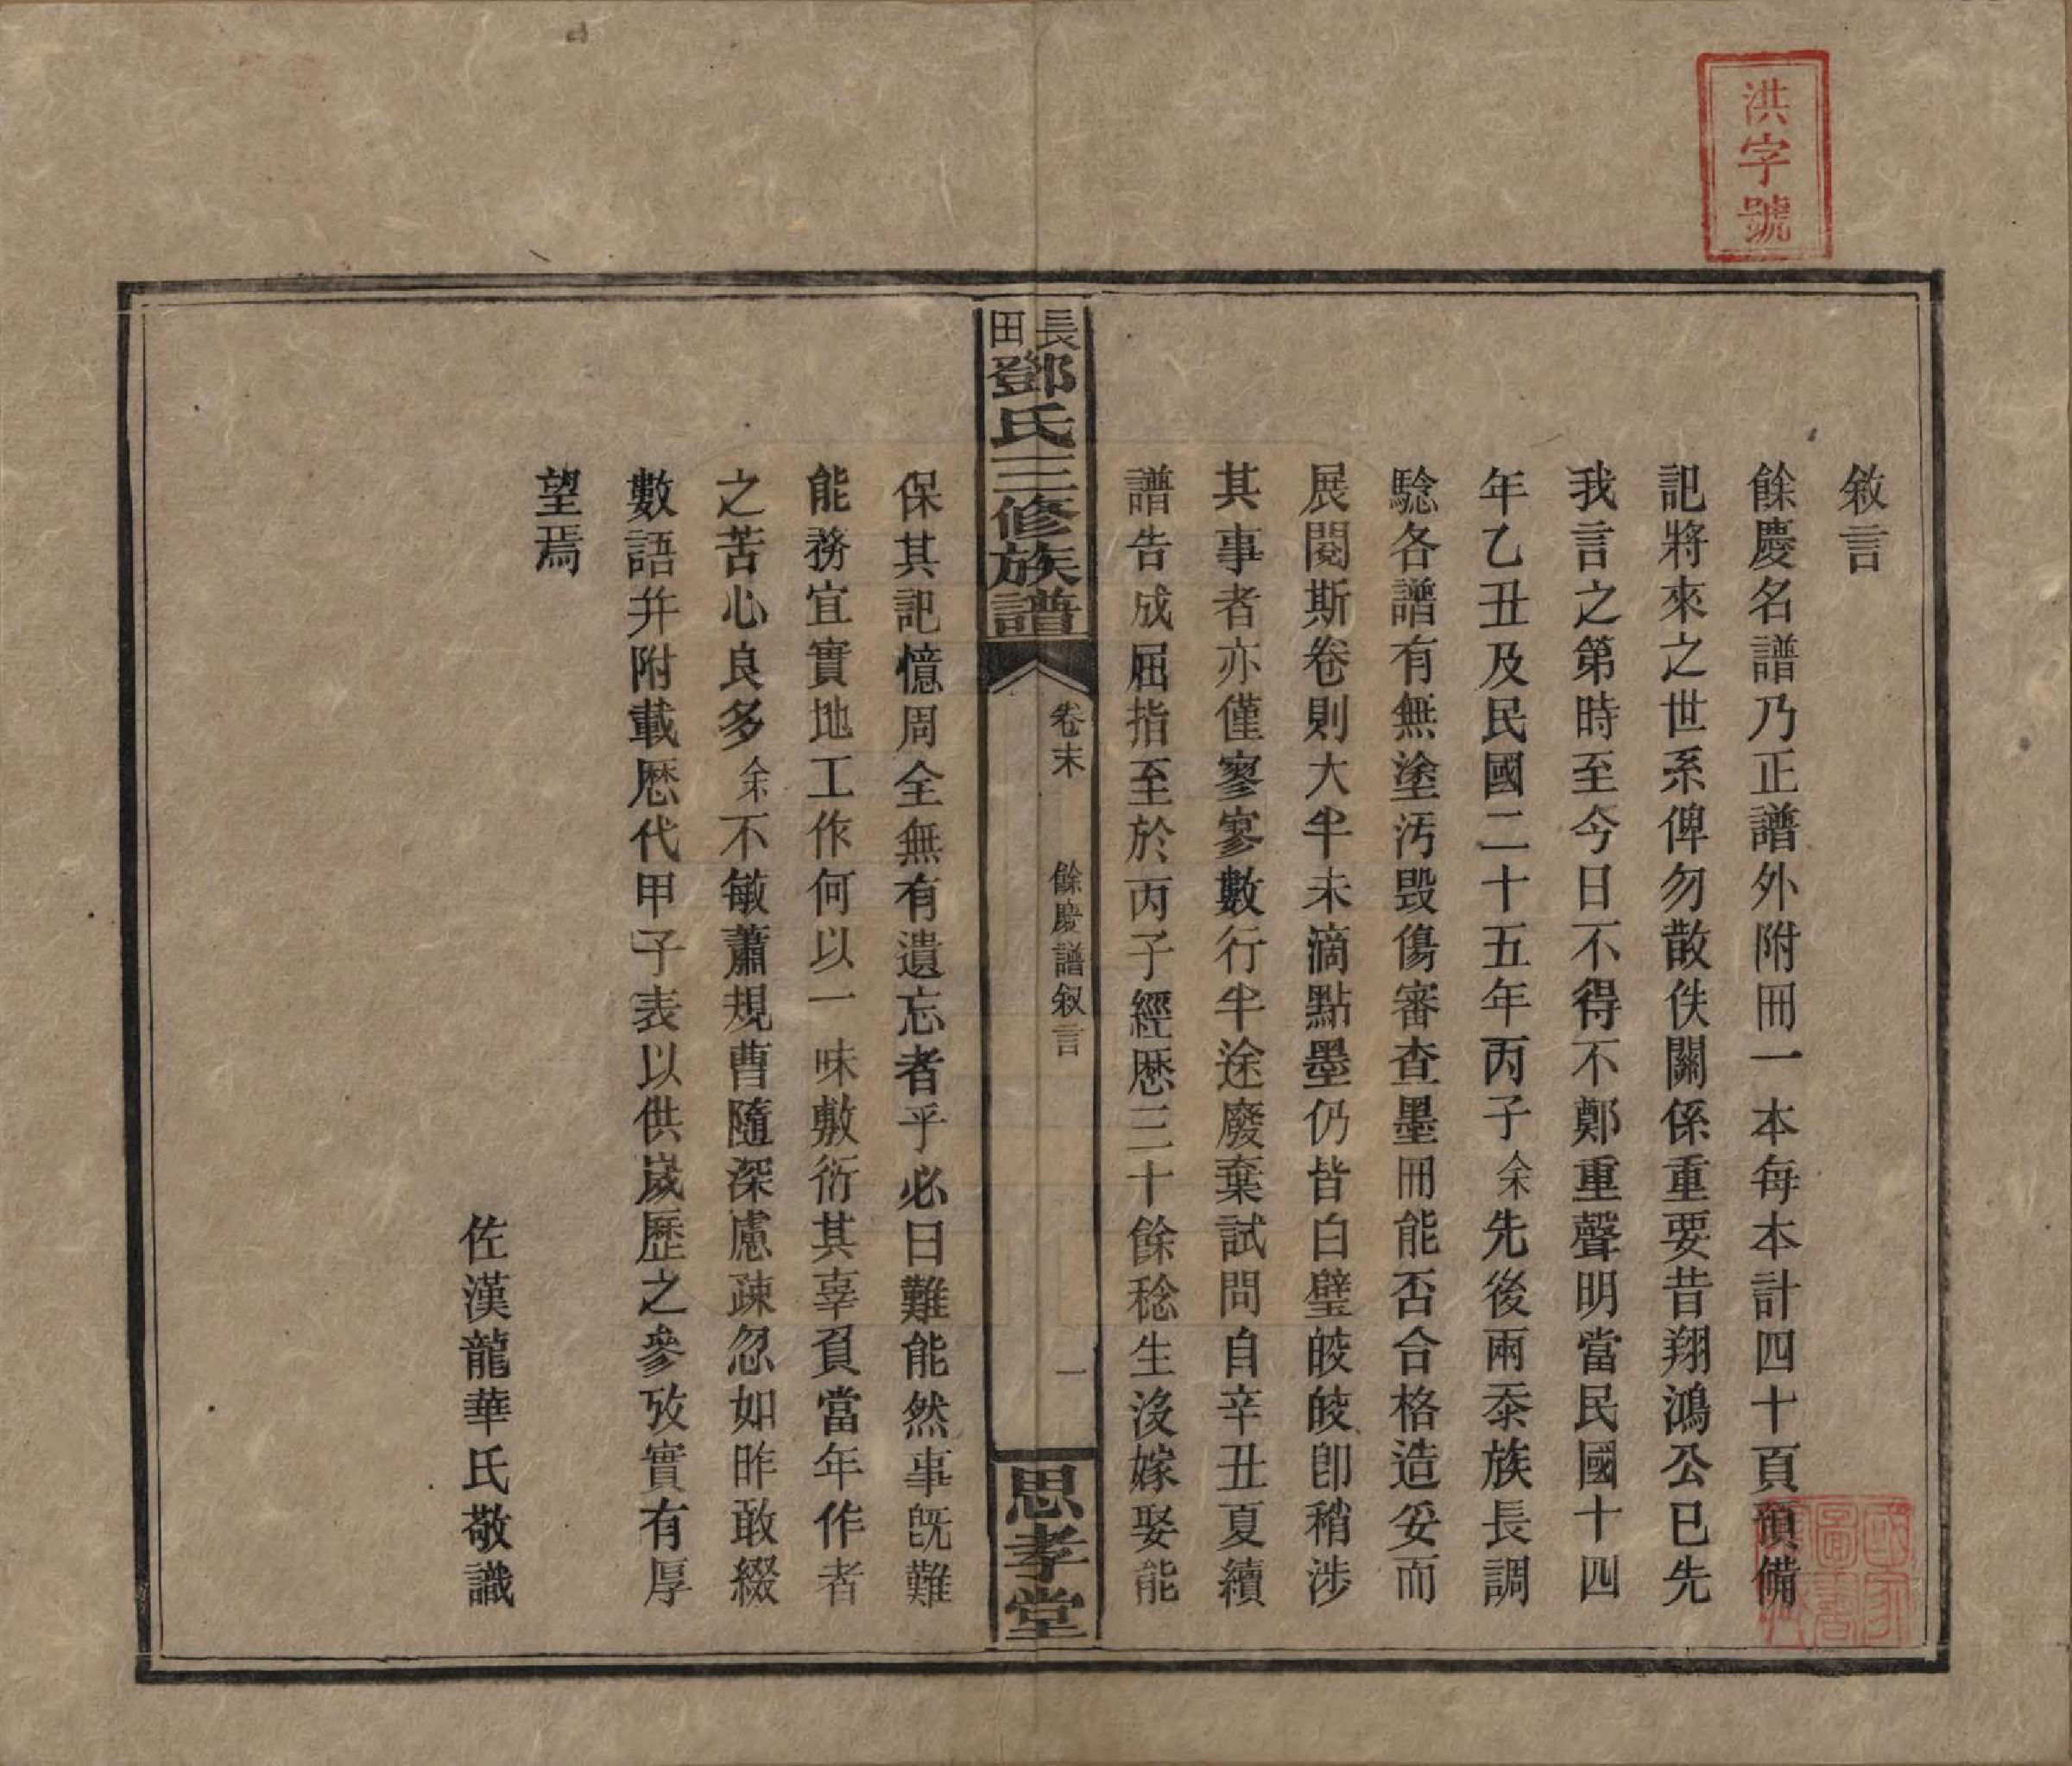 洪字號
敘言
餘慶名譜乃正譜外附冊一本每本計四十頁預備
記將來之世系俾勿散佚關係重要昔翔鴻公已先
我言之第時至今日不得不鄭重聲明當民國十四
年乙丑及民國二十五年丙子余先後兩忝族長調
騐各譜有無塗污毀傷審查墨冊能否合格造妥而
展閱斯卷則大半未滴點墨仍皆白璧皎皎卽稍涉
其事者亦僅寥寥數行半途廢棄試問自辛丑夏續
譜告成屈指至於丙子經歷三十餘稔生沒嫁娶能
長田鄧氏三修族譜
卷末
餘慶譜敘言
一
思孝堂
保其記憶周全無有遺忘者乎必曰難能然事既難
能務宜實地工作何以一味敷衍其辜負當年作者
之苦心良多余不敏蕭規曹隨深慮疎忽如昨敢綴
數語并附載歷代甲子表以供嵗歷之參攷實有厚
望焉
佐漢龍華氏敬識